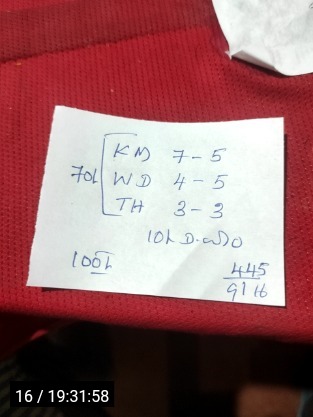 KM 7-5
70L WD 4-5
TH 3-3
10L D.
100L
445
16 / 19:31:58